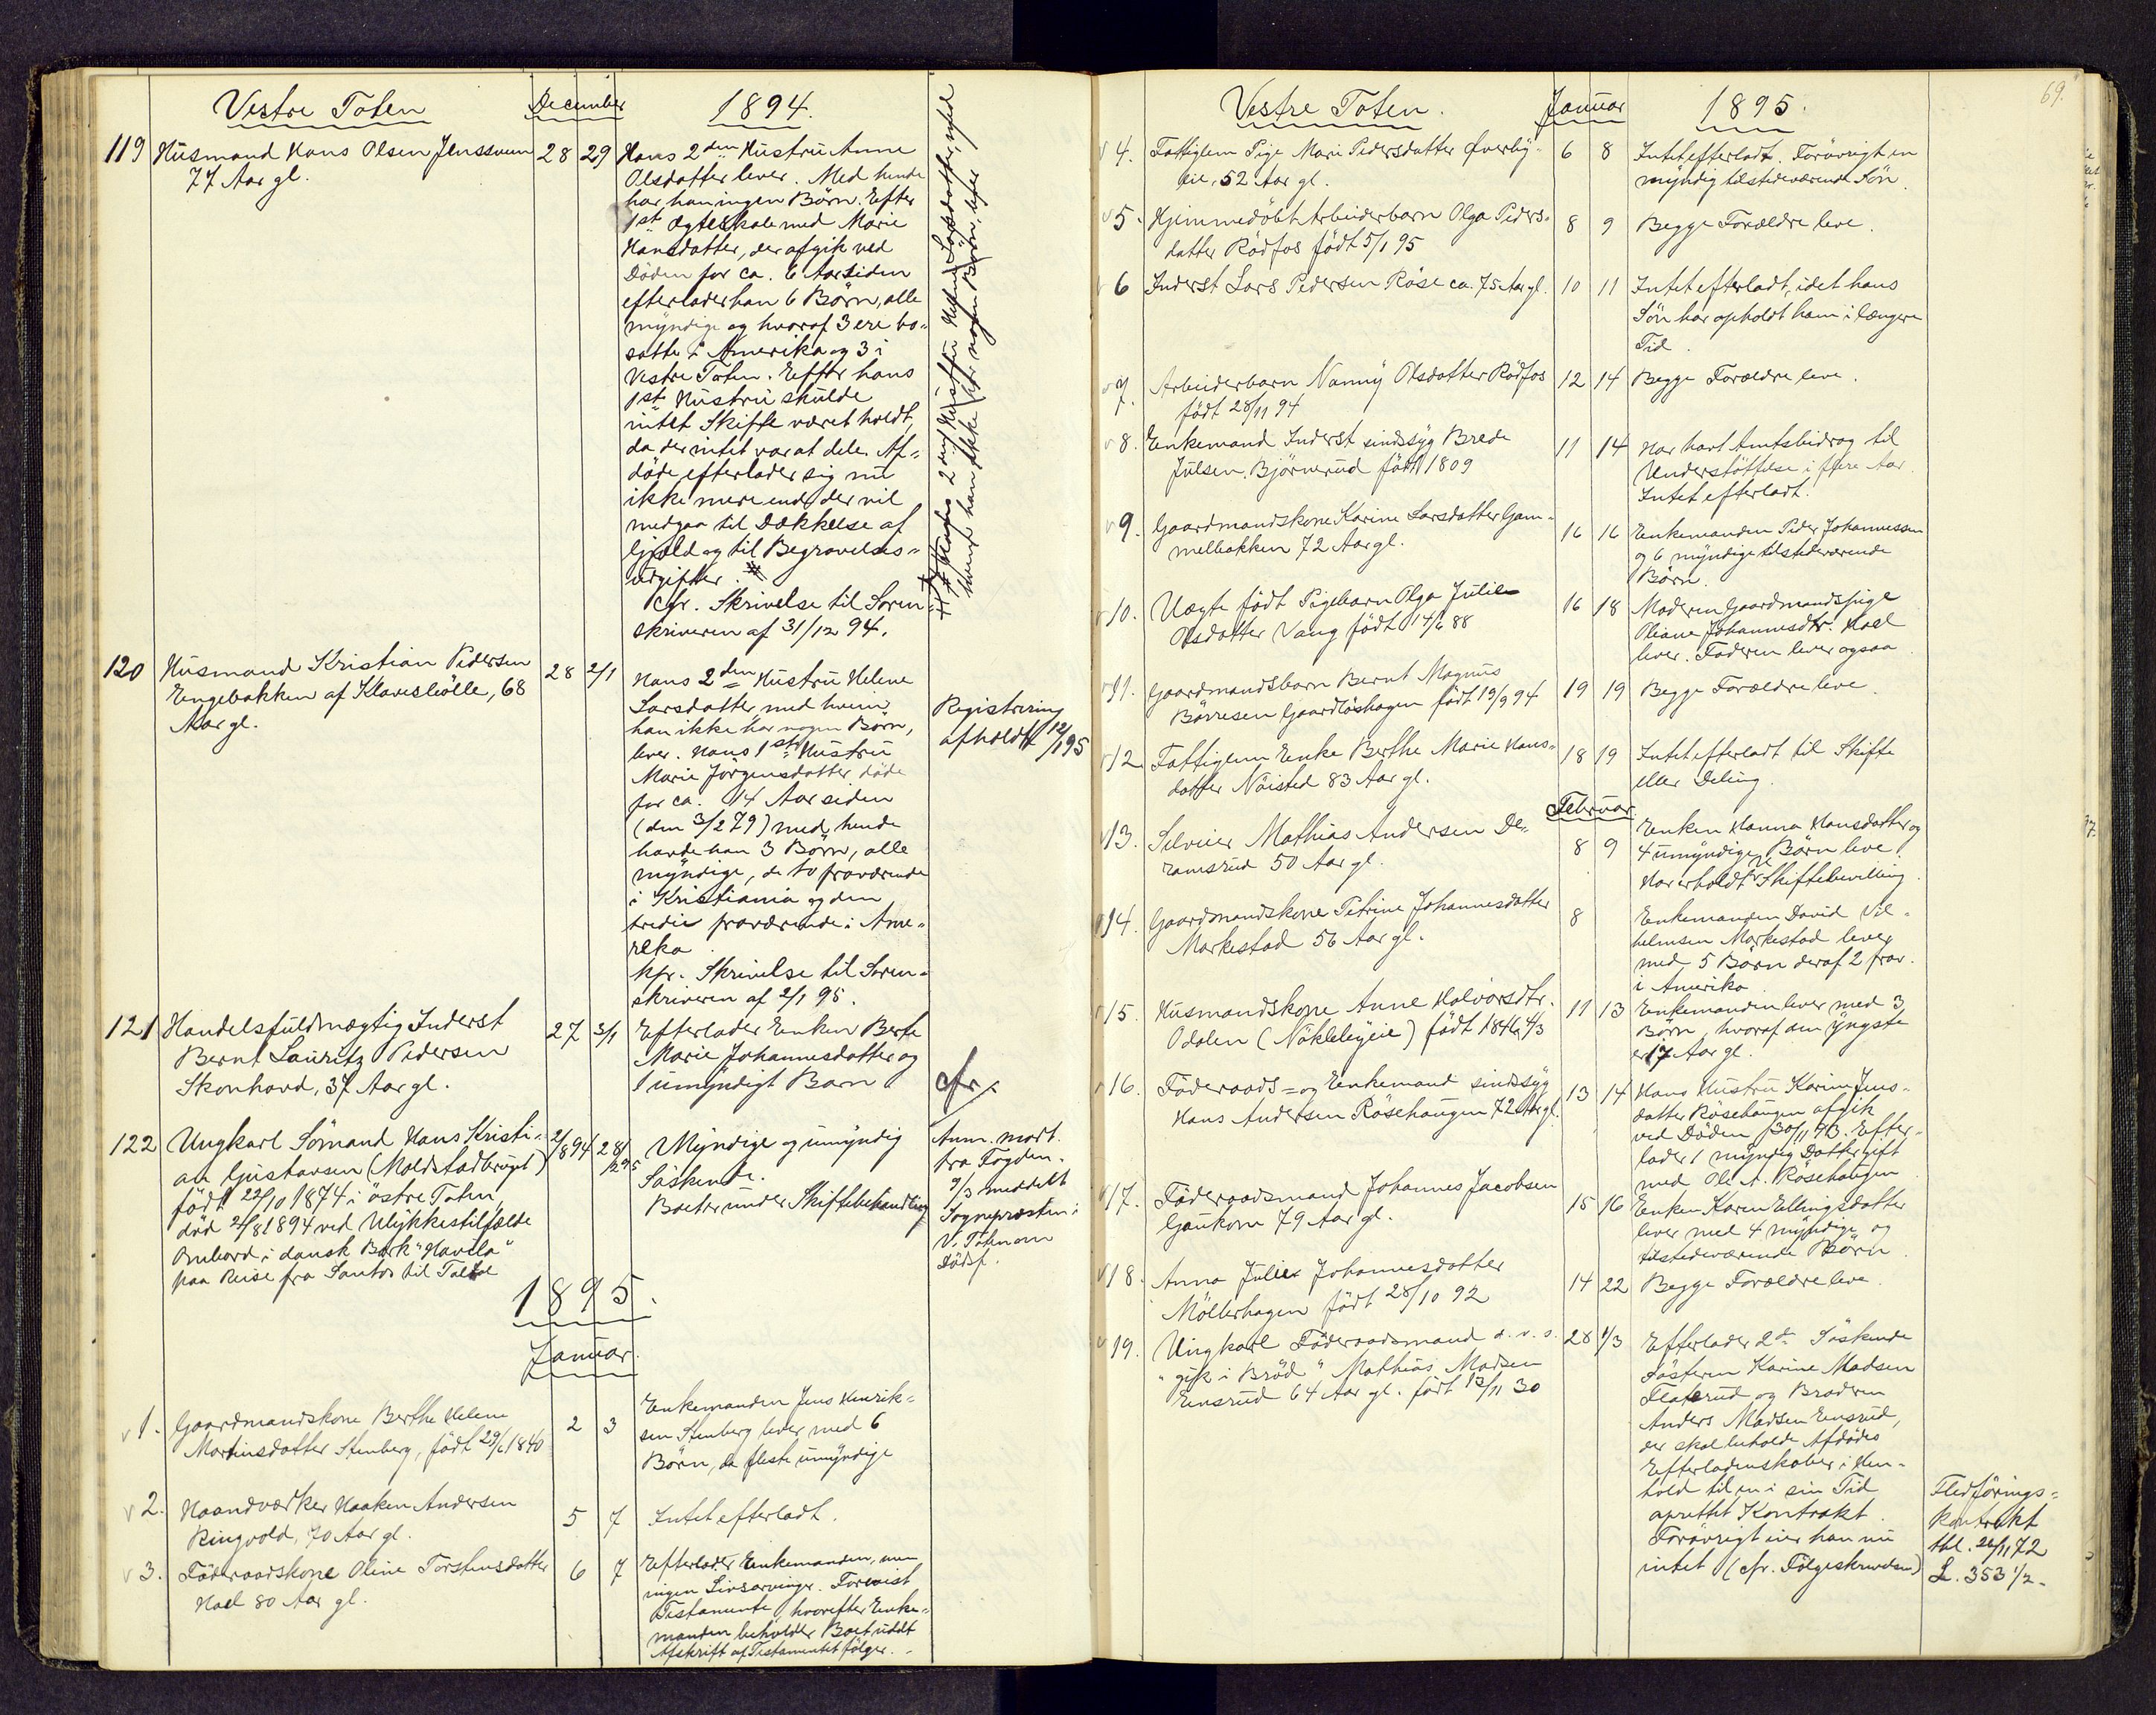 Vestre Toten
December
1894.
119 Husmand Hans Olsen Jensstuen
74 Aar gl.
28 29
Hans 2den Hustru Anne
Olsdatter lever. Med hende
har han ingen Börn. Efter
1st Ægteskab med Marie
Hansdatter, der afgik ved
Döden for ca. 6 Aar siden
efterlader han 6 Börn, alle
myndige og hvoraf 3 ere bo-
satte i Amerika og 3 i
Vestre Toten. Efter hans
1st Hustru skulde
intet Skifte været holdt,
da der intet var at dele. Af-
döde efterlader sig nu
ikke mere end der vil
medgaa til Dækkelse af
Gjæld og til Begravelses-
udgifter. #
Cfr. Skrivelse til Soren-
skriveren af 31/12 94.
# Hans 2den Hustru Helene Larsdatter, med
hvem han ikke har nogen Börn, lever
120 Husmand Kristian Pedersen
Engebakken af Klavesbölle, 68
Aar gl.
28 2/1
Hans 2den Hustru Helene
Larsdatter med hvem
han ikke har nogen Börn,
lever. Hans 1st Hustru
Marie Jörgensdatter döde
for ca. 14 Aar siden
(den 3/2 79) med hende
havde han 3 Börn, alle
myndige, de to fraværende
i Kristiania og den
tredie fraværende i Ame-
rika
Kfr. Skrivelse til Soren-
skriveren af 2/1 95.
Registrering
afholdt 12/1 95
121 Handelsfuldmægtig Inderst
Bernt Lauritz Pedersen
Skonhovd, 37 Aar gl.
27 3/1
Efterlader Enken Berte
Marie Johannesdatter og
1 umyndigt Barn
cfr.
122 Ungkarl Sömand Hans Kristi-
an Gustavsen (Moldstadbruget)
födt 22/10 1874 i östre Toten,
död 2/8 1894 ved Ulykkestilfælde
Ombord i dansk Bark "Havila"
paa Reise fra Santos til Taltal
2/8 94 28/2 95
Myndige og umyndig
Söskende.
Boet er under Skiftebehandling
Anm. modt.
fra Fogden.
9/3 meddelt
Sognepræsten i
V. Toten om
Dödsf.
1895.
Januar.
v 1. Gaardmandskone Berthe Helene
Martinsdatter Stenberg, födt 29/6 1840
2 3
Enkemanden Jens Henrik-
sen Stenberg lever med 6
Börn, de fleste umyndige
v 2. Haandværker Haaken Andersen
Ringvold, 70 Aar gl.
5 7
Intet efterladt.
v 3. Föderaadskone Oline Torstensdatter
Hoel 80 Aar gl.
6 7
Efterlader Enkemanden, men
ingen Livsarvinger. Forevist
Testamente, hvorefter Enke-
manden beholder Boet udelt
Afskrift af Testamentet fölger.
69.
Vestre Toten.
Januar
1895.
v 4. Fattiglem Pige Mari Pedersdatter Överby-
eie, 52 Aar gl.
6 8
Intet efterladt. Forövrigt en
myndig tilstedeværende Sön.
v 5. Hjemmedöbt Arbeiderbarn Olga Peders-
datter Rödfos födt 5/1 95
8 9
Begge Forældre leve.
v 6 Inderst Lars Pedersen Röse ca. 75 Aar gl.
10 11
Intet efterladt, idet hans
Sön har opholdt ham i længere
Tid.
v 7. Arbeiderbarn Nanny Olsdatter Rödfos
födt 28/11 94
12 14
Begge Forældre leve.
v 8. Enkemand Inderst sindssyg Brede
Julsen Björnerud födt 1809
11 14
Har havt Amtsbidrag til
Understöttelse i flere Aar.
Intet efterladt.
v 9. Gaardmandskone Karine Larsdatter Gam-
melbakken 72 Aar gl.
16 16
Enkemanden Peder Johannessen
og 6 myndige tilstedeværende
Börn.
v 10. Uægte födt Pigebarn Olga Julie
Olsdatter Vang födt 14/6 88
16 18
Moderen Gaardmandspige
Oliane Johannesdtr. Hoel
lever. Faderen lever ogsaa
v 11. Gaardmandsbarn Bernt Magnus
Börresen Gaardlöshagen födt 19/9 94
19 19
Begge Forældre leve.
v 12 Fattiglem Enke Berthe Marie Hans-
datter Nöisted 83 Aar gl.
18 19
Intet efterladt til Skifte
eller Deling.
Februar
v 13. Selveier Mathias Andersen De-
ramsrud 50 Aar gl.
8 9
Enken Hanna Hansdatter og
4 umyndige Börn leve
Har erholdt Skiftebevilling.
v 14. Gaardmandskone Petrine Johannesdatter
Markestad 56 Aar gl.
8
Enkemanden David Vil-
helmsen Markestad lever
med 5 Börn deraf 2 frav.
i Amerika
v 15. Husmandskone Anne Halvorsdtr.
Odalen (Nökleleyeie) födt 1846 4/3
11 13
Enkemanden lever med 3
Börn, hvoraf den yngste
er 17 Aar gl.
v 16. Föderaads- og Enkemand sindssyg
Hans Andersen Rösehaugen 72 Aar gl.
13 14
Hans Hustru Karin Jens-
datter Rösehaugen afgik
ved Döden 30/11 93. Efter-
lader 1 myndig Datter gift
med Ole A. Rösehaugen
v 17. Föderaadsmand Johannes Jacobsen
Gaukom 79 Aar gl.
15 16
Enken Karen Ellingsdatter
lever med 4 myndige og
tilstedeværende Börn.
v 18. Anna Julie Johannesdatter
Möllerhagen födt 28/10 92
14 22
Begge Forældre leve.
v 19. Ungkarl Föderaadsmand d. v. s.
"gik i Bröd" Mathias Madsen
Eensrud 64 Aar gl. födt 13/11 30
28 1/3
Efterlader 2de Söskende
Sösteren Karine Madsen
Flaterud og Broderen
Anders Madsen Eensrud,
der skal beholde Afdödes
Efterladenskaber i Hen-
hold til en i sin Tid
oprettet Kontrakt.
Forövrigt eier han nu
intet (cfr. Fölgeskrivelsen)
Fledförings-
kontrakt
thl. 22/11 72
L. 353 1/2.